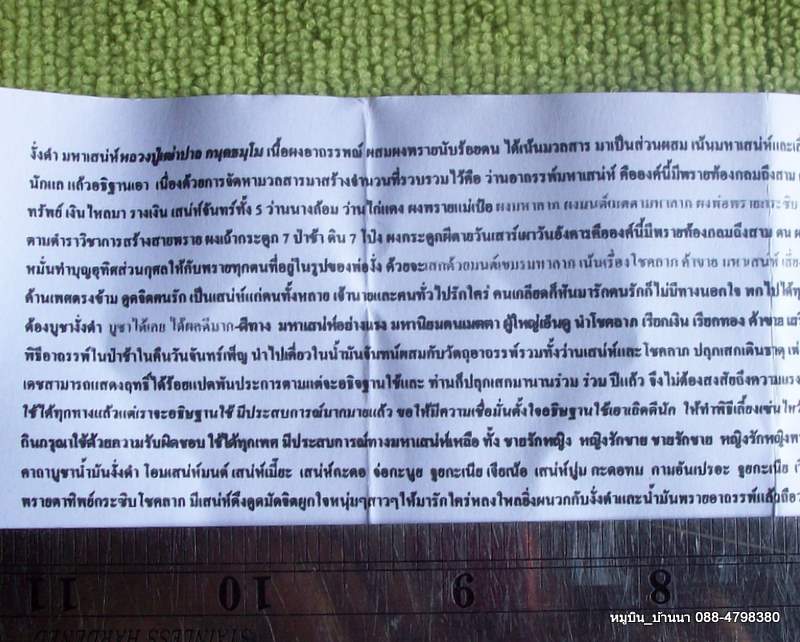 งั่งดำ มหาเสน่ห์หลวงปู่เฒ่าปาอ กนฺตธมฺโม เนื้อผงอาถรรพณ์ ผสมผงพรายนับร้อยตน ได้เน้นมวลสาร มาเป็นส่วนผสม เน้นมหาเสน่ห์และ
นักแล แล้วอธิฐานเอา เนื่องด้วยการจัดหามวลสารมาสร้างจำนวนที่รวบรวมไว้คือ ว่านอาถรรพ์มหาเสน่ห์ คือองค์นี้มีพรายท้องกลมถึงสาม
ทรัพย์ เงินไหลมา รางเงิน เสน่ห์จันทร์ทั้ง 5 ว่านนางล้อม ว่านไก่แดง ผงพรายแม่เป๋อ ผงมหาลาภ ผงมนต์เมตตามหาลาภ ผงพ่อพรายกระซิบ
ตามตำราวิชาการสร้างสายพราย ผงเถ้ากระดูก 7 ป่าช้า ดิน 7 โป่ง ผงกระดูกผีตายวันเสาร์เผาวันอังคารคือองค์นี้มีพรายท้องกลมถึงสาม ตน
หมั่นทำบุญอุทิศส่วนกุศลให้กับพรายทุกตนที่อยู่ในรูปของพ่องั่ง ด้วยจะเสกด้วยมนต์เขมรมหาลาภ เน้นเรื่องโชคลาภ ค้าขาย มหาเสน่ห์
ด้านเพศตรงข้าม ดูดจิตคนรัก เป็นเสน่ห์แก่คนทั้งหลาย เจ้านายและคนทั่วไปรักใคร่ คนเกลียดก็หันมารักคนรักก็ไม่มีทางนอกใจ พกไปได้
ต้องบูชางั่งดำ บูชาได้เลย ได้ผลดีมาก-ดีทาง มหาเสน่ห์อย่างแรง มหานิยมคนเมตตา ผู้ใหญ่เอ็นดู นำโชคลาภ เรียกเงิน เรียกทอง ค้าขาย
พิธีอาถรรพ์ในป่าช้าในคืนวันจันทร์เพ็ญ นำไปเคี่ยวในน้ำมันจันทน์ผสมกับวัตถุอาถรรพ์รวมทั้งว่านเสน่ห์และโชคลาภ ปลุกเสกเดินธาตุ
เดชสามารถแสดงฤทธิ์ได้ร้อยแปดพันประการตามแต่จะอธิฐานใช้และ ท่านก็ปลุกเสกมานานร่วม ร่วม ปีแล้ว จึงไม่ต้องสงสัยถึงความแรง
ใช้ได้ทุกทางแล้วแต่เราจะอธิษฐานใช้ มีประสบการณ์มากมายแล้ว ขอให้มีความเชื่อมั่นตั้งใจอธิษฐานใช้เอาเถิดดีนัก ให้ทำพิธีเลี้ยงเซ่นไหว้
ถิ่นกรุณาใช้ด้วยความรับผิดชอบ ใช้ได้ทุกเพศ มีประสบการณ์ทางมหาเสน่ห์เหลือ ทั้ง ชายรักหญิง หญิงรักชาย ชายรักชาย หญิงรักหญิง
คาถาบูชาน้ำมันงั่งดำ โอมเสน่ห์มนต์ เสน่ห์เมี้ยะ เสน่ห์กะดอ จ่อกะนูย จูยกะเนีย เจียเน้อ เสน่ห์ปูม กะดอทม กามอันเปรอะ จูยกะเนีย
พรายตาทิพย์กระซิบโชคลาภ มีเสน่ห์ดึงดูดมัดจิตผูกใจหนุ่มๆสาวๆให้มารักใคร่หลงใหลยิ่งผนวกกับงั่งดำและน้ำมันพรายอาถรรพ์แล้วถือ
11 10 9 8
STAINLESS HARDENED
หมูบิน_บ้านนา 088-4798380